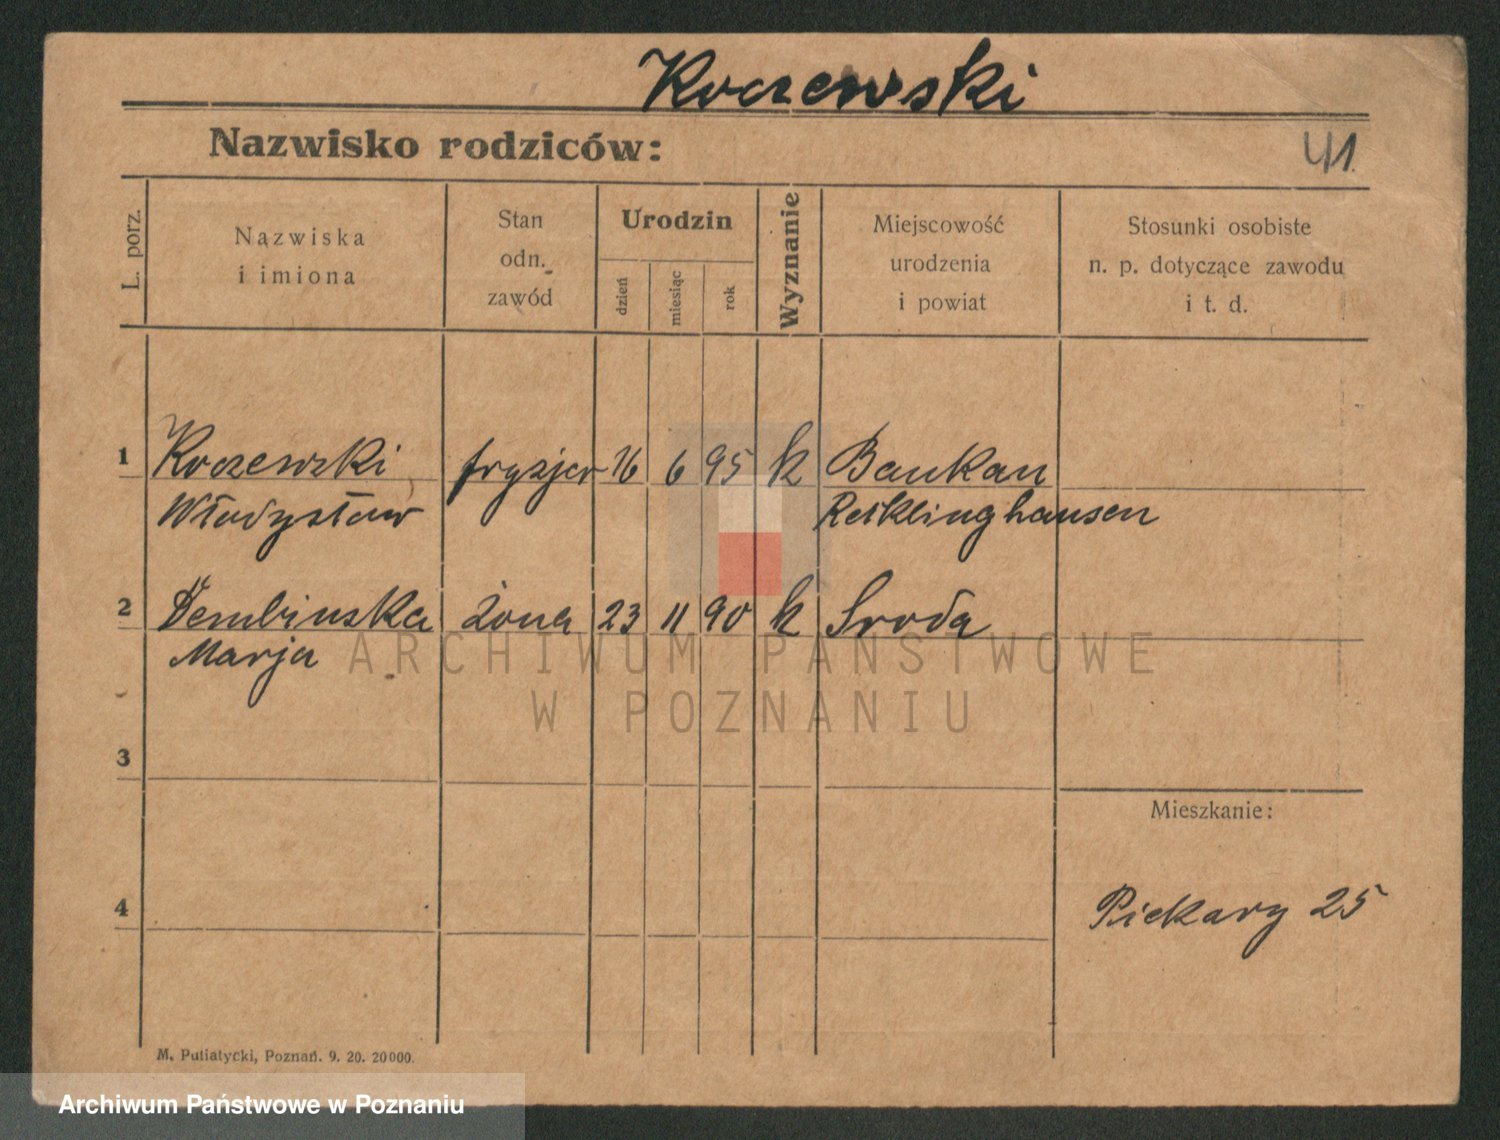 Koczewski
Nazwisko rodziców:
41.
L. porz.
Nazwiska
i imiona
Stan
odn.
zawód
Urodzin
dzień
miesiąc
rok
Wyznanie
Miejscowość
urodzenia
i powiat
Stosunki osobiste
n. p. dotyczące zawodu
i t. d.
1 Koczewski fryzjer 16 6 95 k Baukau
Władysław Recklinghausen
2 Dembinska żona 23 11 90 k Sroda
Marja
ARCHIWUM PAŃSTWOWE
W POZNANIU
3
Mieszkanie:
4
Piekary 25
M. Putiatycki, Poznań. 9. 20. 20000.
Archiwum Państwowe w Poznaniu